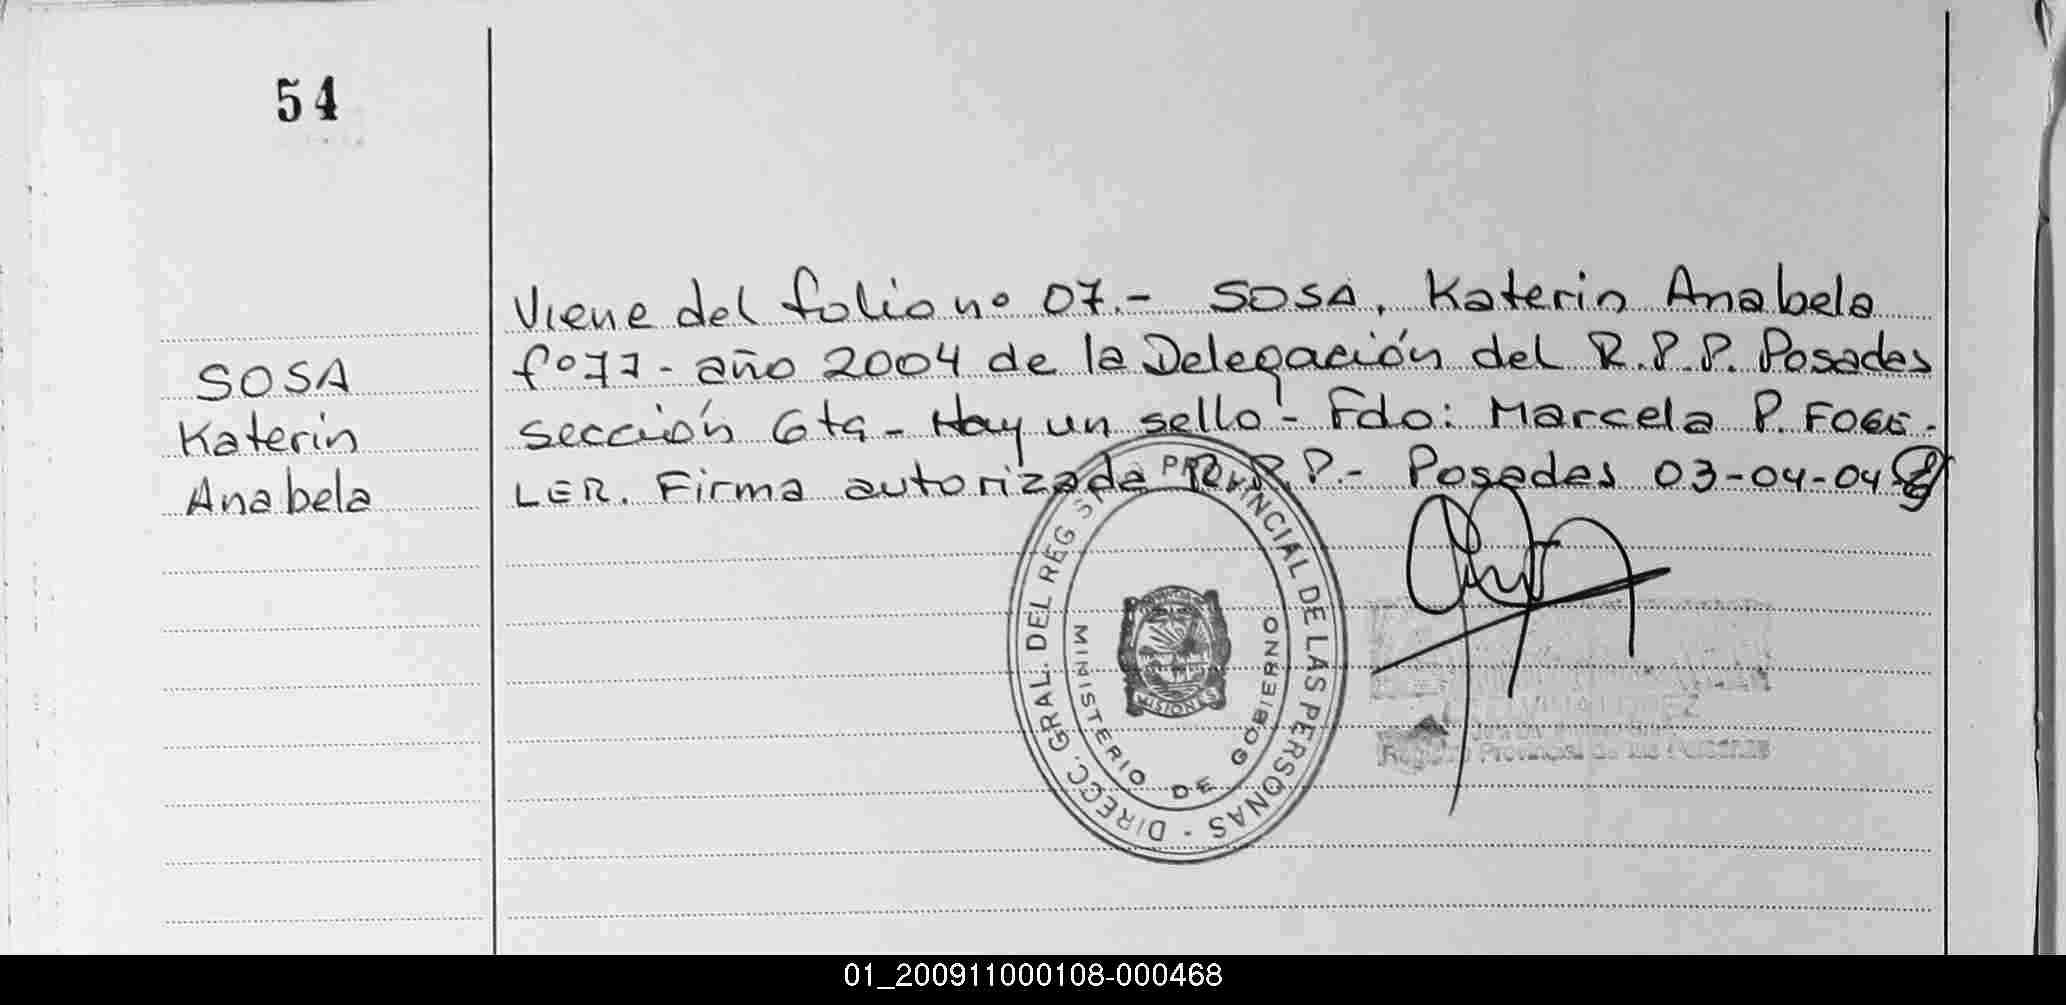 54
Viene del folio nº 07.- SOSA, Katerin Anabela
SOSA
Katerin
Anabela
fº 77 - año 2004 de la Delegación del R.P.P. Posadas
sección 6ta - Hay un sello - Fdo: Marcela P. FOGE-
LER. Firma autorizada R.R.P.- Posadas 03-04-04
DIRECC. GRAL. DEL REG PROVINCIAL DE LAS PERSONAS -
MINISTERIO DE GOBIERNO
MISIONES
Registro Provincial de las Personas
01_200911000108-000468